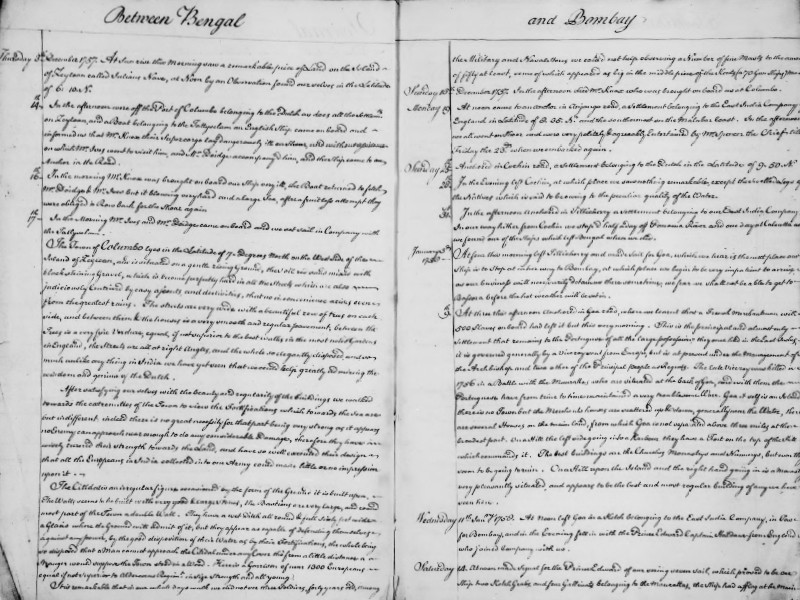 Between Bengal
Thursday 8th December 1757. At Sun rise this Morning saw a remarkable piece of Land on the Island
of Zeyloan called Julians Nave, at Noon by an Observation found our selves in the Latitude
of 6: 10 N.
14 In the afternoon were off the Port of Columbo belonging to the Dutch as does all the
on Zeyloan, and a Boat belonging to the Tellypallam an English Ship came on board and
informed us that Mr. Knox their Supercargo lay dangerously ill on Shore, and without assistance
on which Mr. Ives went to visit him, and Mr. Doidge accompanyed him, and the Ship came to an
Anchor in the Road.
16 In the morning Mr. Knox was brought on board our Ship very ill, the Boat returned to fetch
Mr. Doidge & Mr. Ives but it blowing very hard and a large Sea, after a fruitless attempt they
were obliged to Row back for the Shore again.
17 In the Morning Mr. Ives and Mr. Doidge came on board and we set Sail in Company with
the Tellypallam.
The Town of Columbo lyes in the Latitude of 7 Degrees North on the West Side of the
Island of Zeyloan, and is situated on a gentle rising Ground, the Soil is a solid mixed with
black shining Gravel, which is become perfectly hard in all the Streets which are also
judiciously contrived by easy ascents, and declivities, that no inconvenience arises even
from the greatest rains. The streets are very wide with a beautiful row of trees on each
side, and between them & the houses is a very smooth and regular pavement, between the
Trees is a very fine Verdure, equal, if not superior to the best walks in the most noted Gardens
in England, the Streets are all at right Angles, and the whole so elegantly disposed, and so
much unlike any thing in India we have yet seen that we could not help greatly admiring the
wisdom and genius of the Dutch.
After satisfying our selves with the beauty and regularity of the buildings we walked
towards the extremities of the Town to view the Fortifications which towards the Sea are
but indifferent, indeed there is no great necessity for that part being very strong as it appears
no Enemy can approach near enough to do any considerable Damage, therefore they have
wisely turned their strength towards the Land, and have so well executed their design
that all the Europeans in India collected into one Army could make little or no impression
upon it
The Citadel is an irregular figure occasioned by the form of the Ground it is built upon,
The Wall seems to be built with very good & large Stones, the Bastions are very large, and round
most part of the Town a double Wall. They have a wet ditch all round & quite lately put wide
a Glacis where the Ground will admit of it, but they appear as capable of defending themselves
against any power, by the good disposition of their Water as by their Fortifications, the whole being
so disposed that a Man cannot approach the Citadel under any Cover tho' from a little distance a
Stranger would suppose the Town stood in a Wood. Here is a Garrison of near 1300 Europeans
equal if not superior to Aldercrons Regimt. in size strength and all young.
It is remarkable that in our whole days walk we did not see three Soldiers, forty years old, among
and Bombay
the Military and Naval Stores we could not help observing a Number of fine Masts to the amount
of fifty at least, some of which appeared as big in the middle piece of the Kents (a 70 Gun Ships) Mast
Sunday 18th December 1757. In the afternoon died Mr. Knox who was brought on board us at Columbo.
Monday 19 At noon came to an anchor in Anjengo road, a settlement belonging to the East India Company of
England in Latitude of 8. 35 N. and the southermost on the Malabar Coast. In the afternoon
we all went on Shore and were very politely & agreably Entertained by Mr. Spencer the Chief till
Friday the 23d when we embarked again.
Sunday 25 Anchored in Cochin road, a Settlement belonging to the Dutch in the Latitude of 9. 50. N.
In the Evening left Cochin, at which place we saw nothing remarkable, except the swelled Legs of
the Natives which is said to be owing to the peculiar quality of the Water.
In the afternoon Anchored in Tillicherry a settlement belonging to our East India Company
In our way hither from Cochin we stop'd half a Day off Panania River and one day at Calicutta where
we found one of the Ships which left Bengal when we did.
January 1758 At four this morning left Tillicherry and made Sail for Goa, which we hear is the next place our
Ship is to Stop at in her way to Bombay, at which place we begin to be very impatient to arrive,
as our business will necessarily detain us there some time, we fear we shall not be able to get to
Bassora before the hot weather will be set in.
At three this afternoon Anchored in Goa road, where we learnt that a French Merchantman with
500 Slaves on board had left it but this very morning. This is the principal and almost only
Settlement that remains to the Portuguese of all the large possessions they once had in the East Indies,
it is governed generally by a Viceroy sent from Europe, but is at present under the Management of
the Archbishop and two others of the Principal people as Regents. The late Viceroy was killed in
1756 in a Battle with the Mourattas, who are situated at the back of Goa, and with them the
Portuguese have from time to time maintained a very troublesome War. Goa it self is an Island
there is no Town but the Merchants houses are scattered up & down, generally near the Water, there
are several Houses on the main land, from which Goa is not separated above three miles at the
broadest part. On a Hill the left side going in to a Harbour they have a Fort on the top of the Hill
which commands it. The best buildings are the Churches, Monasterys and Nunnerys, but even these
seem to be going to ruin. On a Hill upon the Island and the right hand going in is a Monastery
very pleasantly situated and appears to be the last and most regular building of any we have
seen here.
Wednesday 11th Janry. 1758. At Noon left Goa in a Ketch belonging to the East India Company, in Company
for Bombay, and in the Evening fell in with the Prince Edward Captain from England
who joined Company with us.
Saturday 14. At noon made Signal for the Prince Edward of our seeing seven sail, which proved to be one
Ship two Ketch Grabs and four Gallivats belonging to the Mourattas, the Ship had a flag at the Main